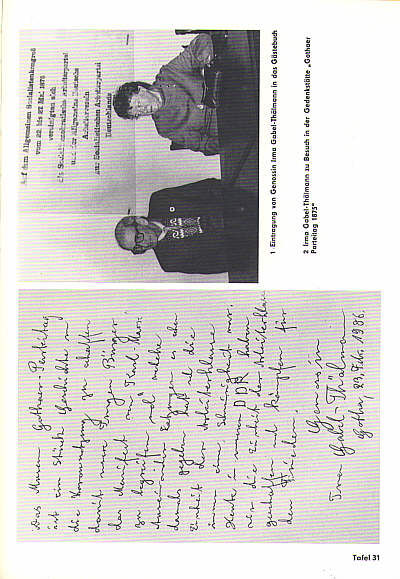 Auf dem Allgemeinen Sozialistenkongreß
vom 22. bis 27. Mai 1875
vereinigten sich
die Sozialdemokratische Arbeiterpartei
und der Allgemeine Deutsche
Arbeiterverein
zur Sozialistischen Arbeiterpartei
Deutschlands
1 Eintragung von Genossin Irma Gabel-Thälmann in das Gästebuch
2 Irma Gabel-Thälmann zu Besuch in der Gedenkstätte „Gothaer
Parteitag 1875“
Das Museum Gothaer-Parteitag
ist ein Stück Geschichte um
die Voraussetzung zu schaffen
damit unsere jungen Bürger
das Manifest von Karl-Marx
zu begreifen und welche
Auseinander
damals gegeben hat ist die
Einheit der Arbeiterklasse
immer eine Schwierigkeit war.
Heute in unserer DDR haben
wir die Einheit der Arbeiterklasse
geschaffen und kämpfen für
den Frieden.
Genossin
Irma Gabel-Thälmann
Gotha, 23. Febr. 1986.
Tafel 31